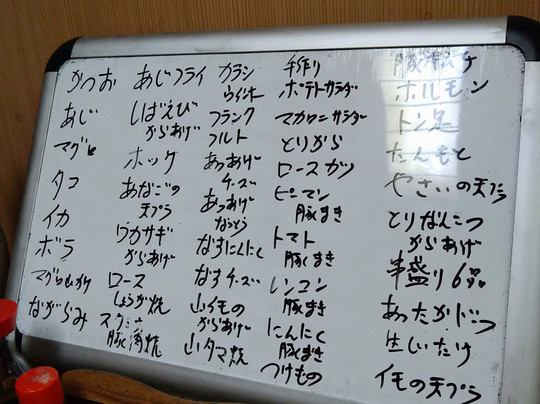 かつお
あじ
マグロ
タコ
イカ
ボラ
マグロぬか
ながらみ
あじフライ
しばえび
からあげ
ホッケ
あなごの
天プラ
ワカサギ
からあげ
ロース
しょうが焼
スタミナ
豚漬焼
カラシ
ウインナー
フランク
フルト
あつあげ
チーズ
あつあげ
なっとう
なすにんにく
なすチーズ
山イモの
からあげ
山タマ焼
手作り
ポテトサラダ
マカロニサラダ
とりから
ロースカツ
ピーマン
豚まき
トマト
豚まき
レンコン
豚まき
にんにく
豚まき
つけもの
ホルモン
トン足
たんもと
やさいの天プラ
とりなんこつ
からあげ
串盛り6品
あったかドーフ
生しいたけ
イモの天プラ